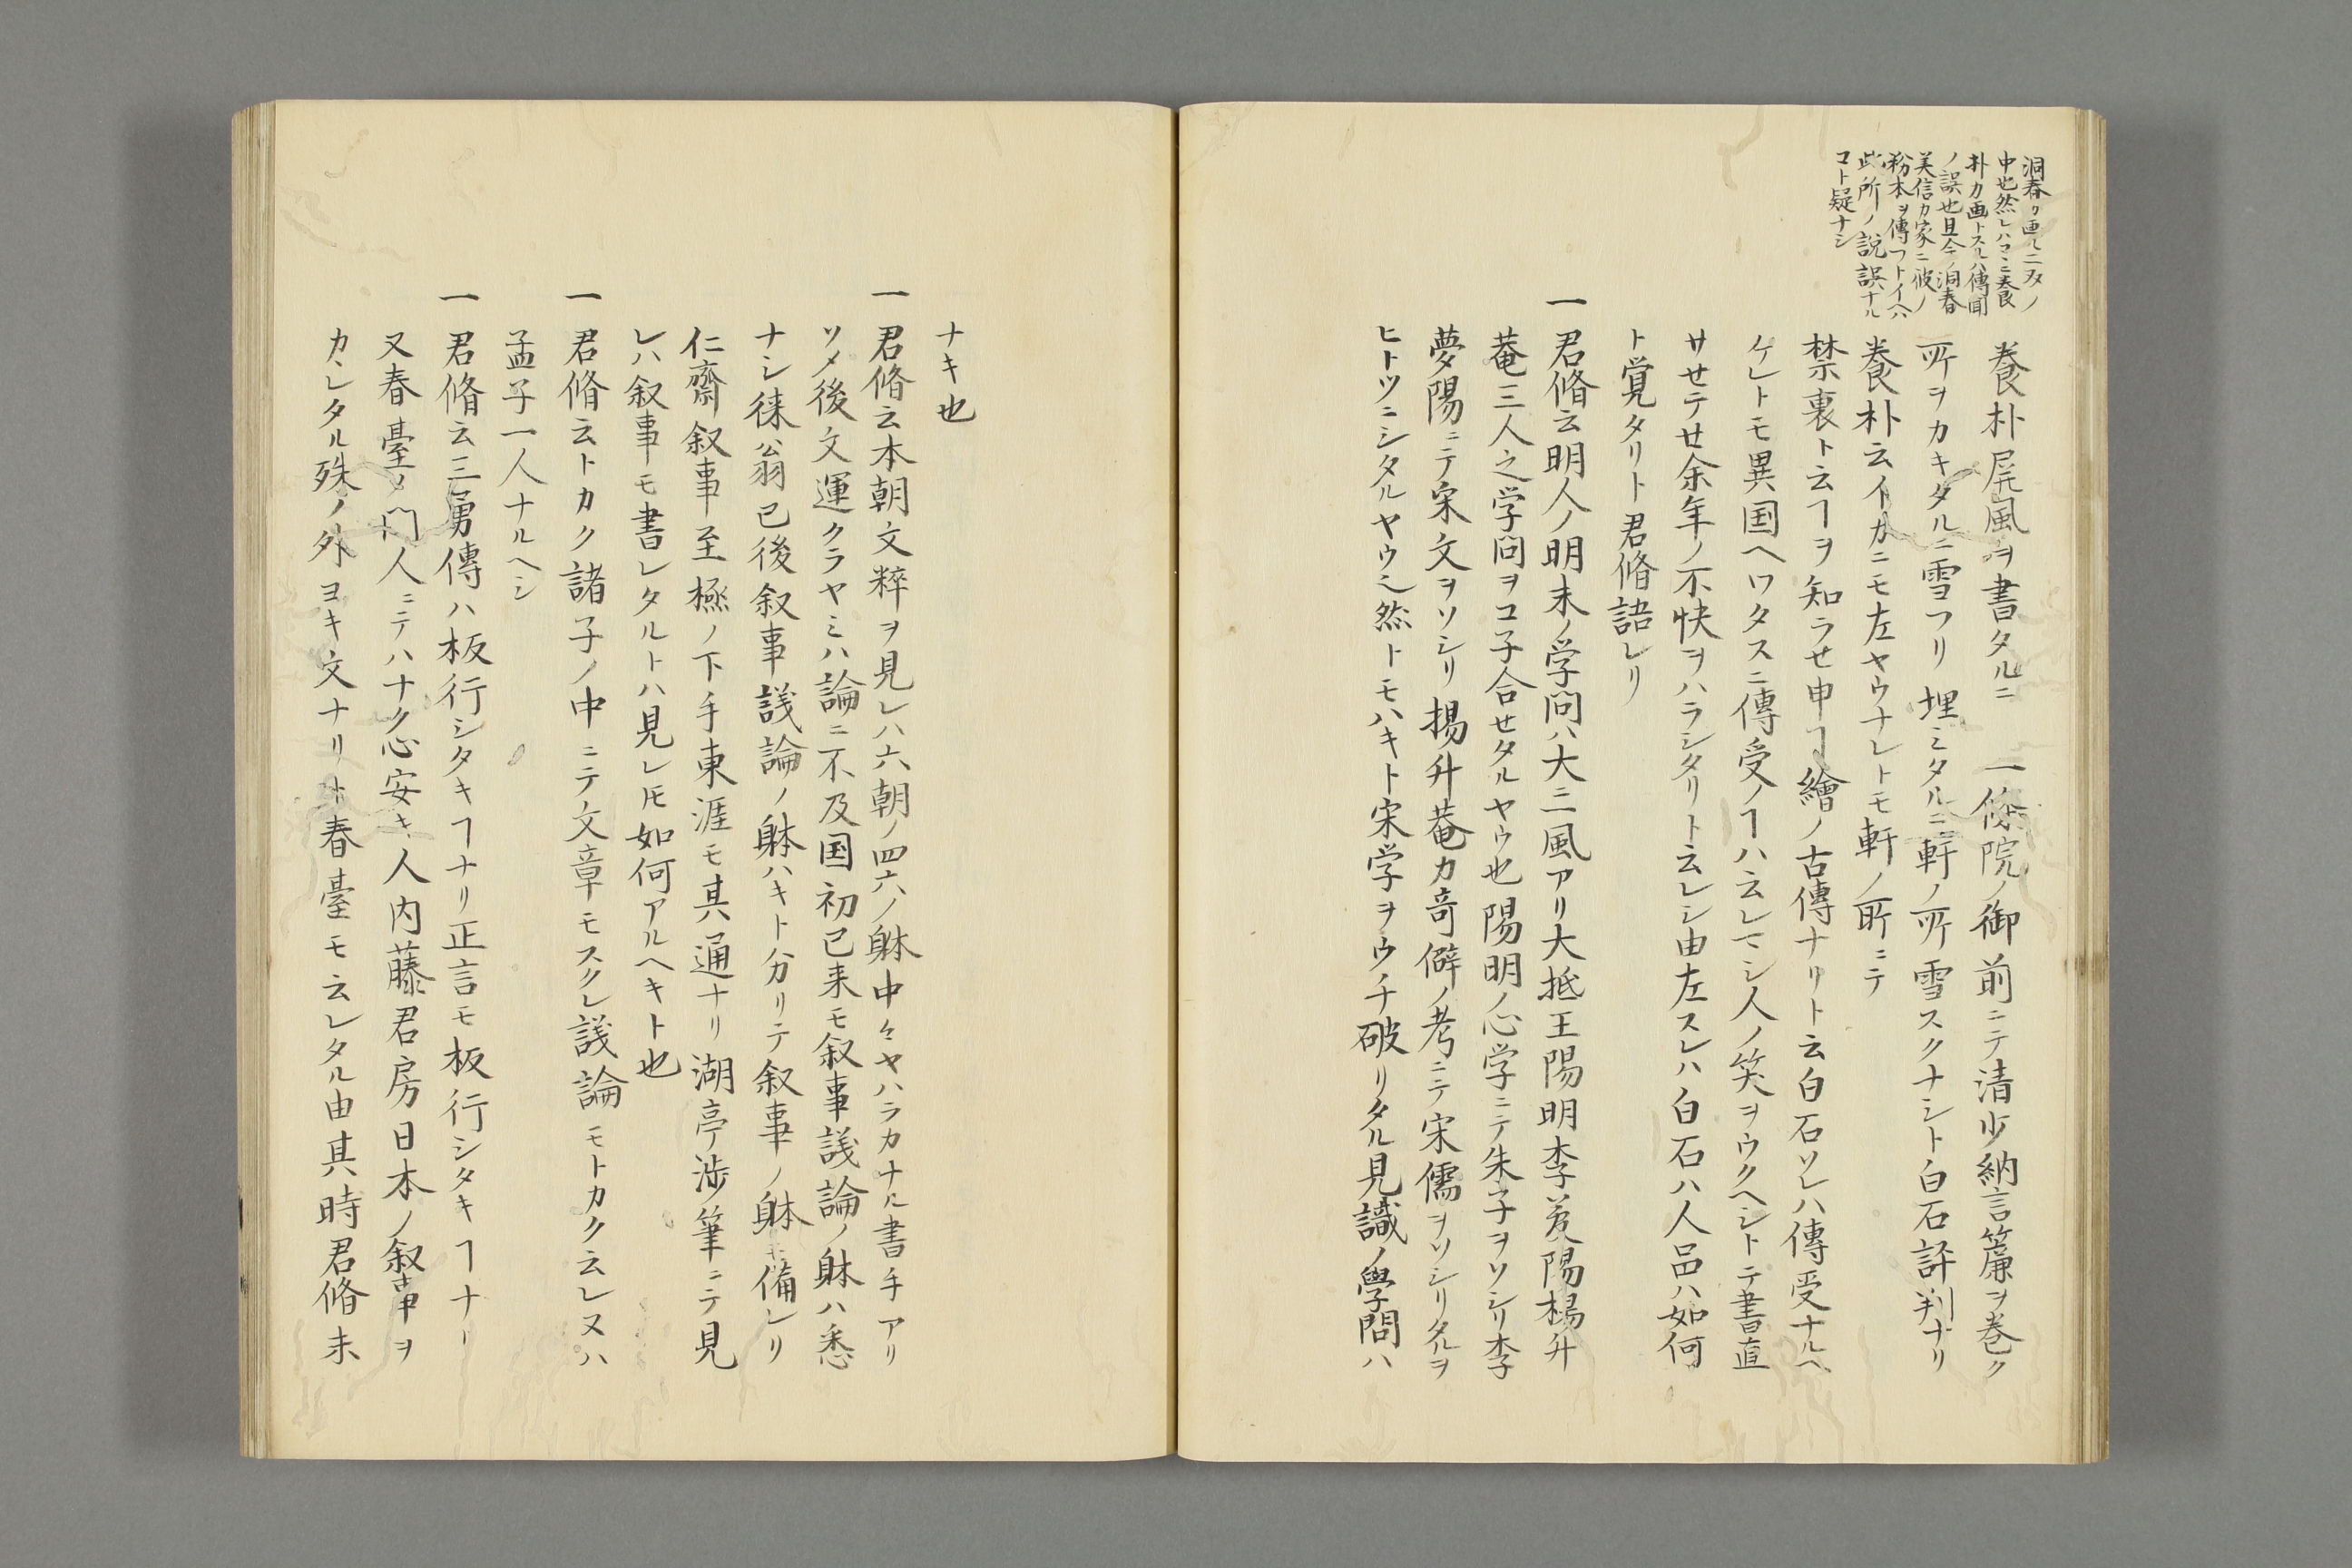 洞春カ画ルニヌノ
中也然レハマニ養
朴カ画トスルハ傳聞
ノ誤也且今ノ洞春
美信カ家ニ彼ノ
粉本ヲ傳フトイヘハ
此所ノ説誤ナル
コト疑ナシ
養朴屏風ヲ書タルニ 一條院ノ御前ニテ清少納言簾ヲ巻ク
所ヲカキタルニ雪フリ埋ミタルニ軒ノ所雪スクナシト白石評判ナリ
養朴云イカニモ左ヤウナレトモ軒ノ所ニテ
禁裏ト云ヿヲ知ラせ申ヿ繪ノ古傳ナリト云白石ソレハ傳受ナルヘ
ケレトモ異国ヘワタスニ傳受ノヿハ云レマシ人ノ笑ヲウクヘシトテ書直
サせテせ余年ノ不快ヲハラシタリト云レシ由左スレハ白石ハ人品ハ如何
ト覚タリト君脩語レリ
一君脩云明人ノ明末ノ学問ハ大ニ風アリ大抵王陽明李夢陽楊升
菴三人之学問ヲコ子合せタルヤウ也陽明ノ心学ニテ朱子ヲソシリ李
夢陽ニテ宋文ヲソシリ楊升菴カ竒僻ノ考ニテ宋儒ヲソシリタルヲ
ヒトツニシタルヤウ也然トモハキト宋学ヲウチ破リタル見識ノ學問ハ
ナキ也
一君脩云本朝文粹ヲ見レハ六朝ノ四六ノ躰中々ヤハラカナル書手アリ
ソメ後文運クラヤミハ論ニ不及国初已来モ叙事議論ノ躰ハ悉
ナシ徠翁已後叙事議論ノ躰ハキト分リテ叙事ノ躰モ備レリ
仁齋叙事至極ノ下手東涯モ其通ナリ湖亭渉筆ニテ見
レハ叙事モ書レタルトハ見レ𪜈如何アルヘキト也
一君脩云トカク諸子ノ中ニテ文章モスクレ議論モトカク云レヌハ
孟子一人ナルヘシ
一君脩云三勇傳ハ板行シタキヿナリ正言モ板行シタキヿナリ
又春臺ノ門人ニテハナク心安キ人内藤君房日本ノ叙事ヲ
カヽレタル殊ノ外ヨキ文ナリト春臺モ云レタル由其時君脩未